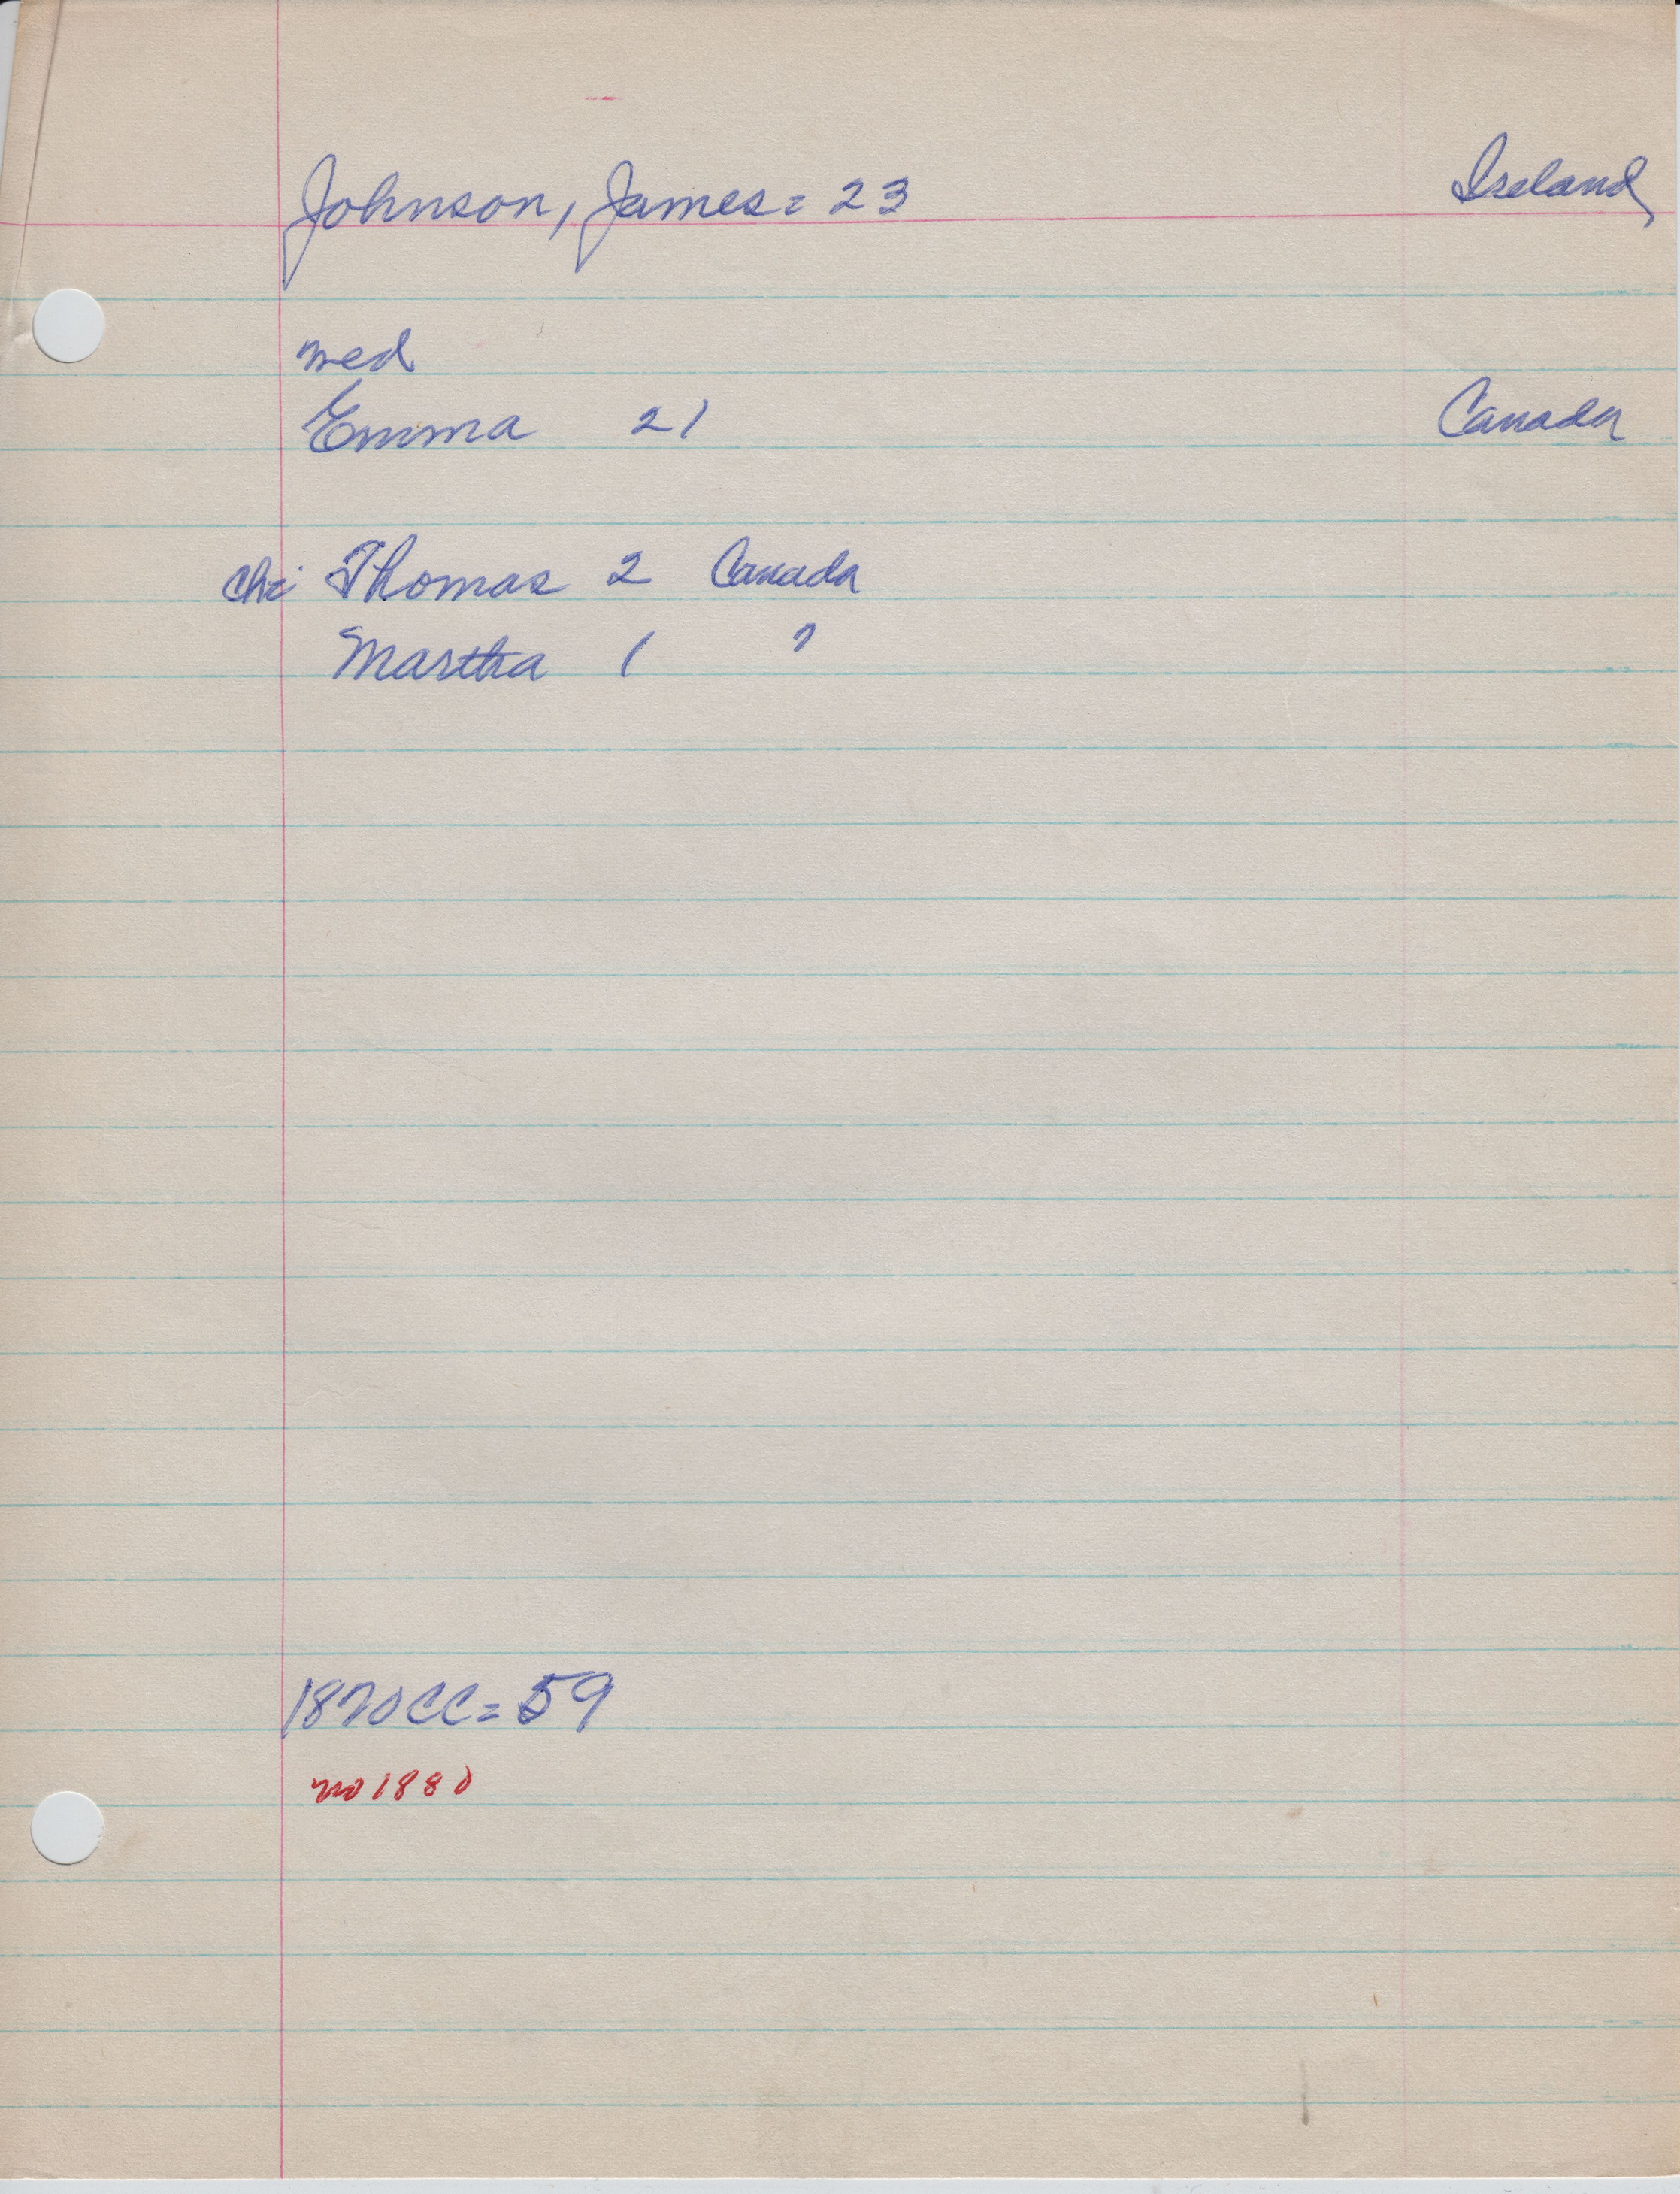 Johnson, James = 23 Ireland
med
Emma 21 Canada
chi Thomas 2 Canada
Martha 1 "
1870 CC = 59
no 1880